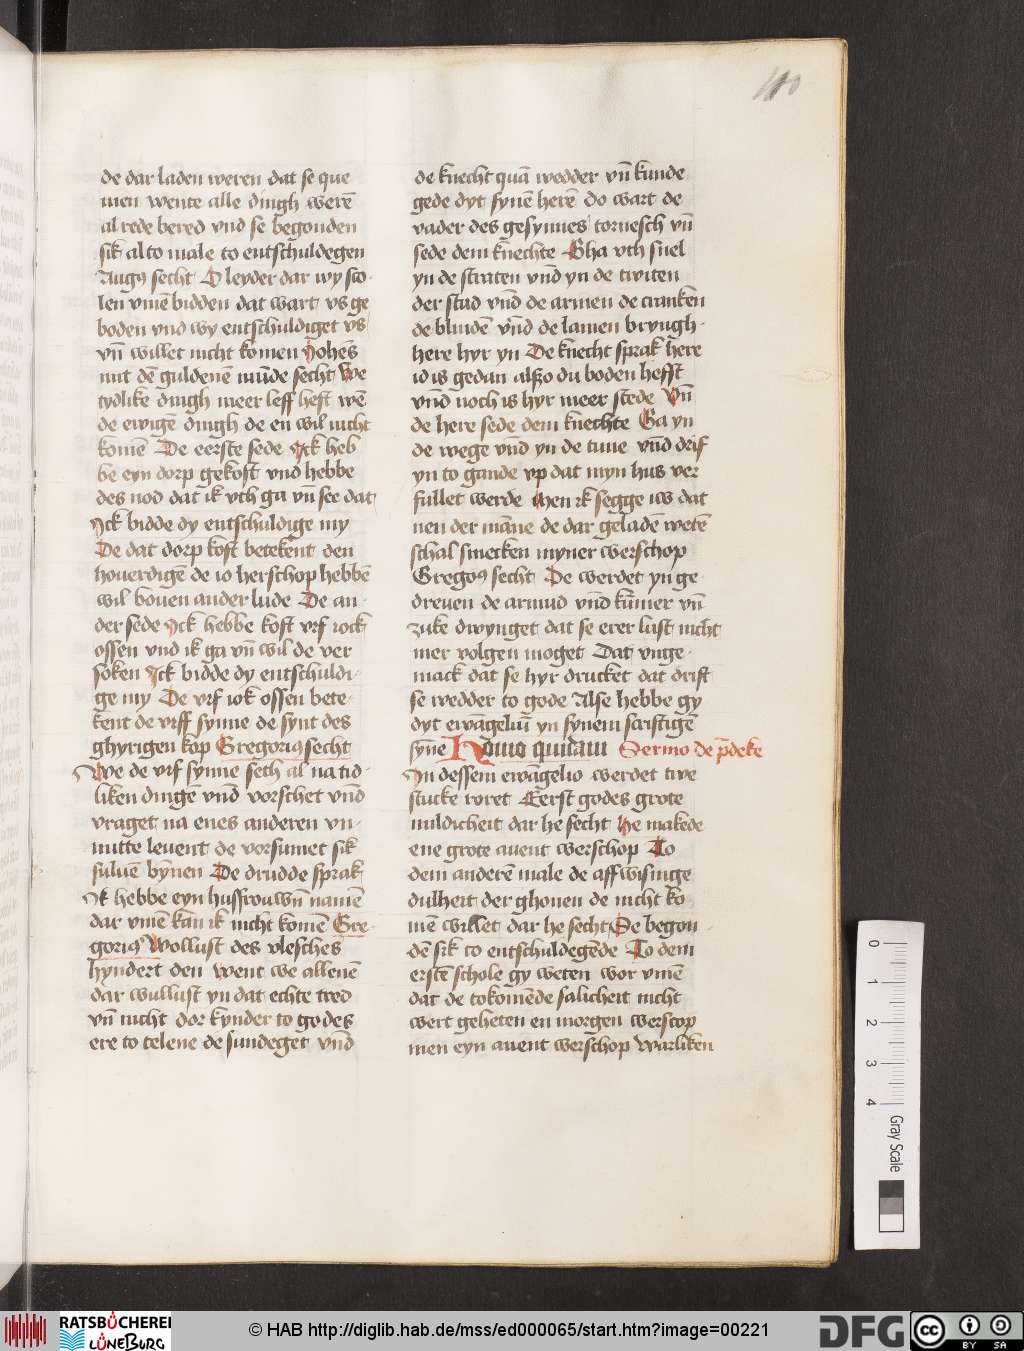 110
de dar laden weren dat se que
men wente alle dingh werē
al rede bered vnd se begonden
sik al to male to entschuldegen
Augꝰ secht O leyder dar wy sco
len vmē bidden dat wart vs ge
boden vnd wy entschuldiget vs
vn̄ willet nicht komen Johēs
mit dē guldenē mūde secht We
tydlike dingh meer leff heft wē
de ewigē dingh de en wil nicht
komē De eerste sede Ick heb
be eyn dorp gekoft vnd hebbe
des nod dat ik vth ga vn̄ see dat
Ick bidde dy entschuldige my
De dat dorp koft betekent den
houerdigē de io herschop hebbē
wil bouen ander lude De an
der sede Ick hebbe koft vyf iock
ossen vnd ik ga vn̄ wil de ver
soken Ick bidde dy entschuldi
ge my De vyf iok ossen bete
kent de vyff synne de synt des
ghyrigen kop Gregoriꝰ secht
We de vyf synne seth al na tid
liken dingē vnd vorschet vnd
vraget na enes anderen vn
nutte leuent de vorsumet sik
suluē bynen De drudde sprak
Ik hebbe eyn husfrouwn̄ namē
dar vmē kan ik nicht komē Gre
goriꝰ Wollust des vlesches
hyndert den Went we allenē
dar wullust yn dat echte tred
vn̄ nicht dor kynder to godes
ere to telene de sundeget vnd
de knecht quā wedder vn̄ kunde
gede dyt synē herē do wart de
vader des gesynnes tornesch vn̄
sede dem knechte Gha vth snel
yn de straten vnd yn de twiten
der stad vnd de armen de cranken
de blindē vnd de lamen bryngh
here hyr yn De knecht sprak here
id is gedan alzo du boden hefft
vnd noch is hyr meer stede Vn̄
de here sede dem knechte Ga yn
de wege vnd yn de tune vnd drif
yn to gande vp dat myn hus ver
fullet werde Men ik segge iw dat
nen der māne de dar geladē werē
schal smecken myner werschop
Gregoꝰ secht De werdet yn ge
dreuen de armud vnd kūmer vn̄
zuke dwynget dat se erer lust nicht
mer volgen moget Dat vnge
mack dat se hyr drucket dat drift
se wedder to gode Alse hebbe gy
dyt ewāgeliū yn synem scriftigē
syn̄e Homo quidam Sermo de p̄deke
In dessem ewāgelio werdet twe
stucke roret Eerst godes grote
mildicheit dar he secht He makede
ene grote auent werschop To
dem anderē male de affwisinge
dulheit der ghonen de nicht ko
mē willet dar he secht De begon
dē sik to entschuldegēde To dem
erstē schole gy weten wor vmē
dat de tokomēde salicheit nicht
wert geheten en morgen werscop
men eyn auent werschop Warliken
0
1
2
3
4
Gray Scale
RATSBÜCHEREI
LÜNEBURG
© HAB http://diglib.hab.de/mss/ed000065/start.htm?image=00221
DFG
cc
BY SA